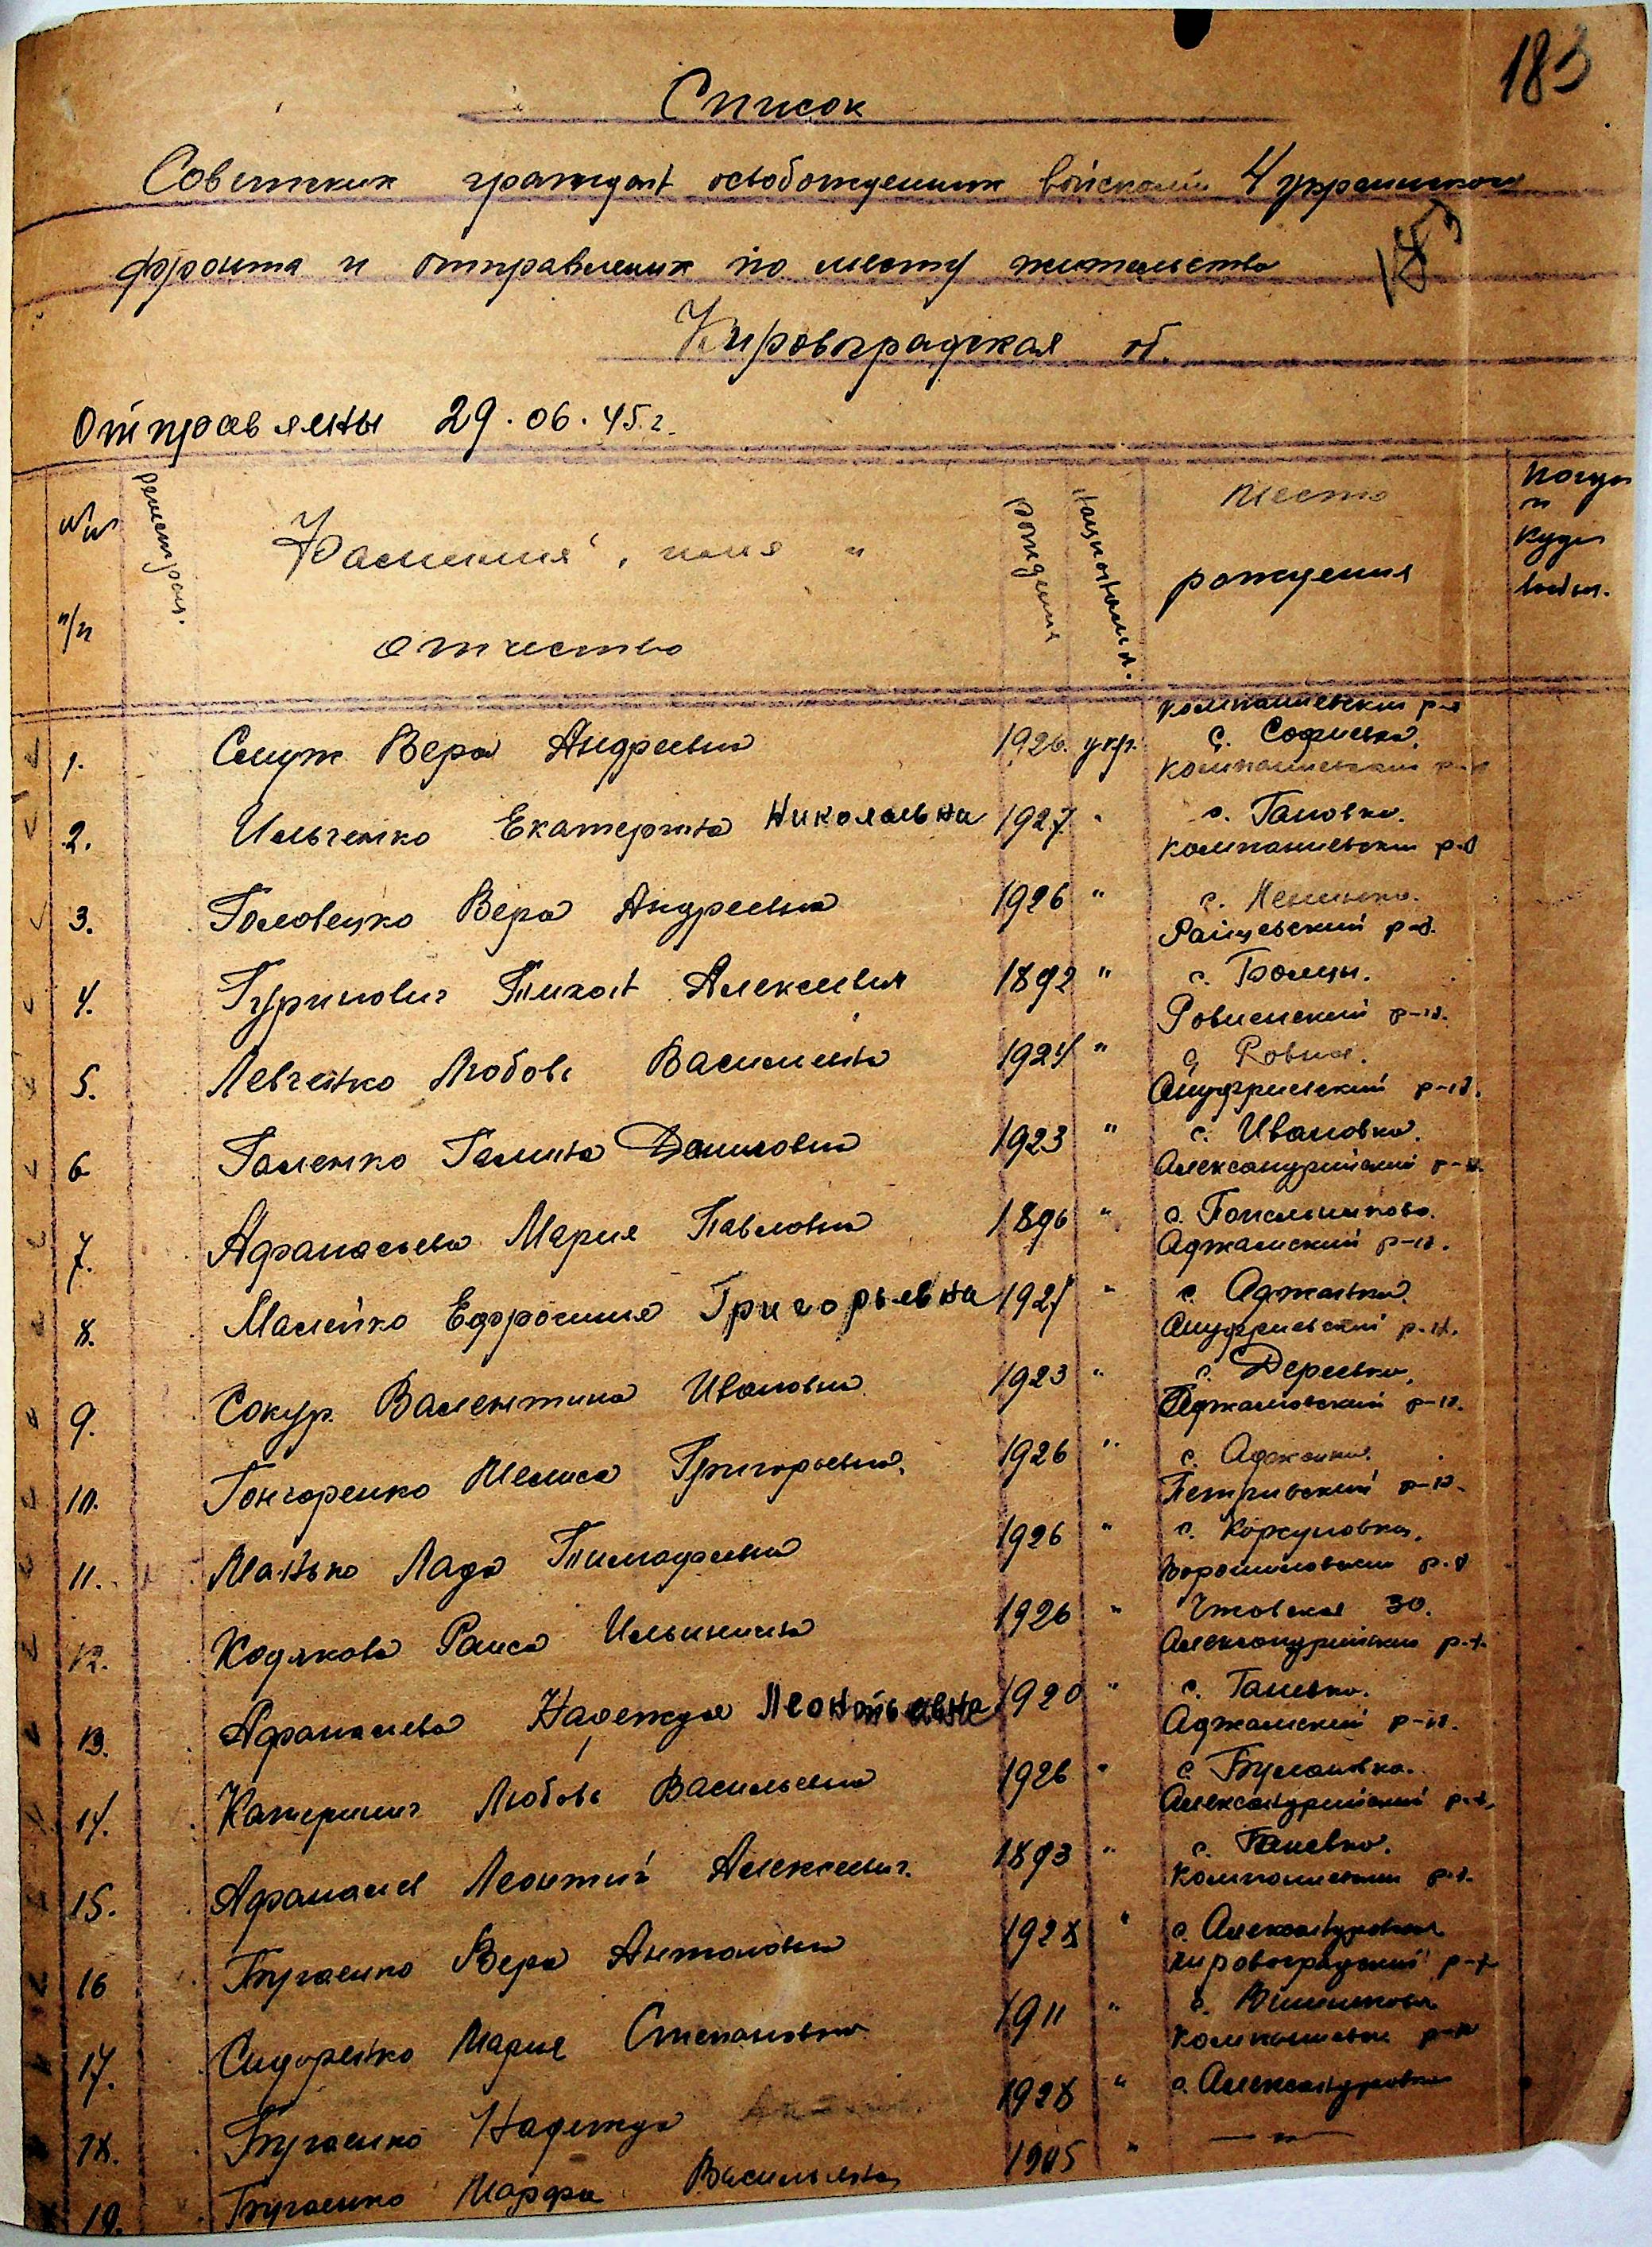 183
Список
Советских граждан освобожденных войсками 4 украинского
фронта и отправленых по месту жительства
183
Кировоградская об.
Отправлены 29.06.45.г.
№№ п/п
регистрац.
Фамилия, имя и отчество
рождения
национальн.
место рождения
Когда и куда
1. Вера Андреевна 1926. укр. Компаниевский р-н с. Софиевка.
2. Ильченко Екатерина Николаевна 1927 " Компаниевский р-н с. Гановка.
3. Головецко Вера Андреевна 1926 " Компаниевский р-н с.
4. Гуринович Тихон Алексеевич 1892 " р-н. с.
5. Левченко Любовь Василевна 1924 " Ровненский р-н. с. Ровное.
6 Галенко Галина Даниловна 1923 " Онуфриевский р-н. с. Ивановка.
7. Афанасьева Мария Павловна 1896 " Александрийский р-н. с.
8. Ефросиния Григорьевна 1924 " Аджамский р-н. с. Аджамка.
9. Сокур Валентина Ивановна 1923 " Онуфриевский р-н. с. Дереевка.
10. Гончаренко Мелиса Григорьевна. 1926 " Аджамовский р-н. с. Аджамка.
11. Манько Лада Тимофеевна 1926 " Петривский р-н. с.
12. Кодякова Раиса Ильинична 1926 " Ворошиловский р-н 30.
13. Афанасиева Надежда Леонтьевна 1920 " Александрийский р-н. с. Ганевка.
14. Катеринич Любовь Васильевна 1926 " Аджамский р-н. с. Булановка.
15. Афанасиев Леонтий Алексеевич. 1893 " Александрийский р-н. с. Ганевка.
16 Бугаенко Вера Антоновна 1928 " Компаниевский р-н. с. Александровка
17. Сидоренко Мария Степановна 1911 " Кировоградский р-н с.
18. Бугаенко Надежда 1928 " Компаниевский р-н с. Александровка
19. Бугаенко Марфа Васильевна 1905 " — " —